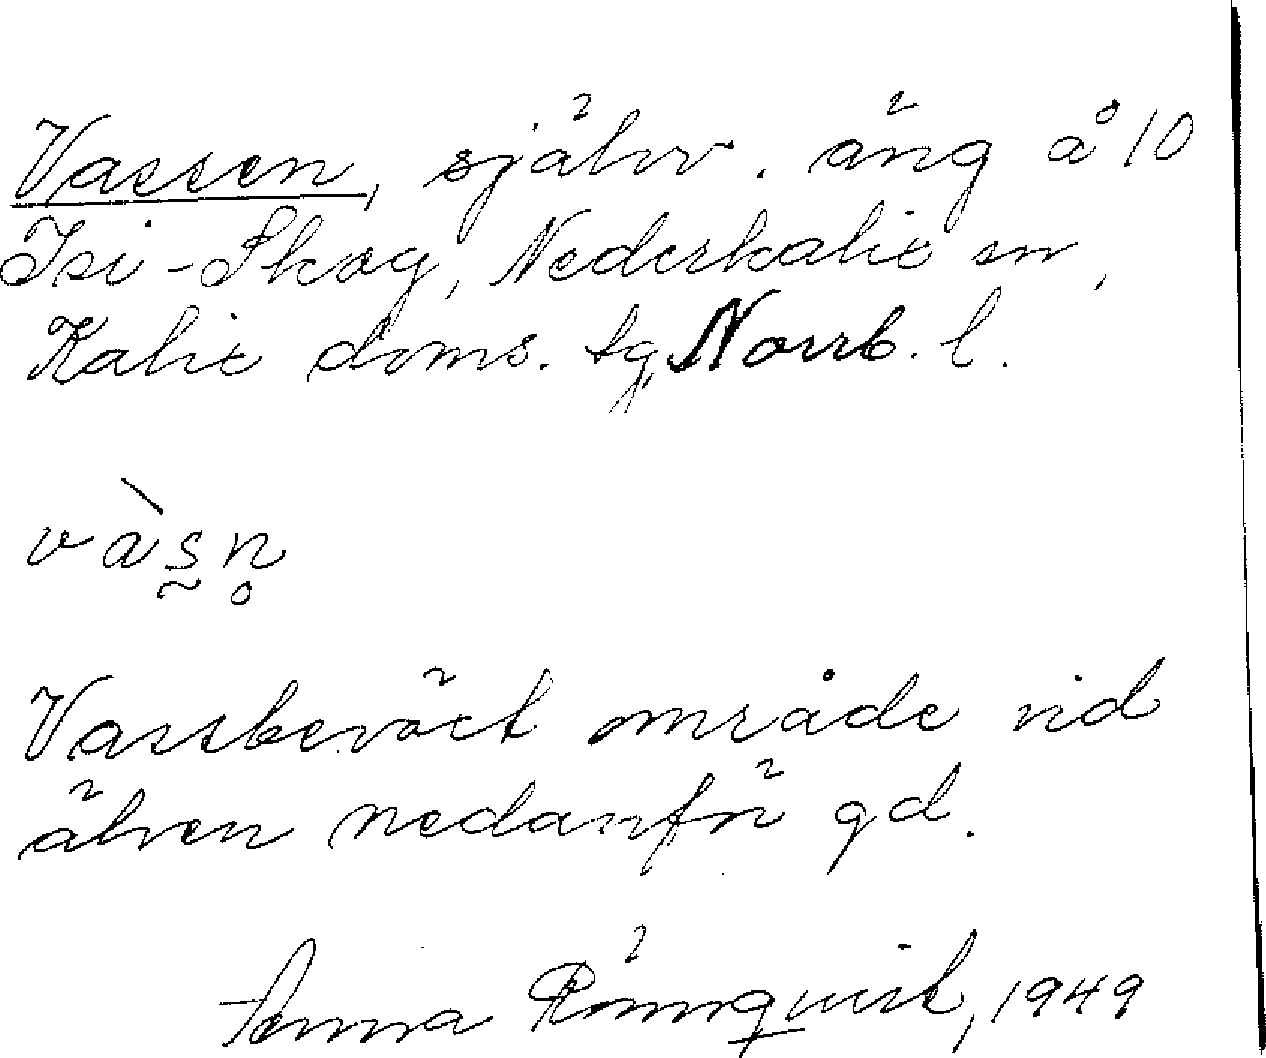 Vassen, självv. äng å 10
Isi-Skog, Nederkalix sn,
Kalix doms. tg, Norrb. l.
vàs̰n̥
Vassbeväxt område vid
älven nedanför gd.
Anna Rönnquist, 1949